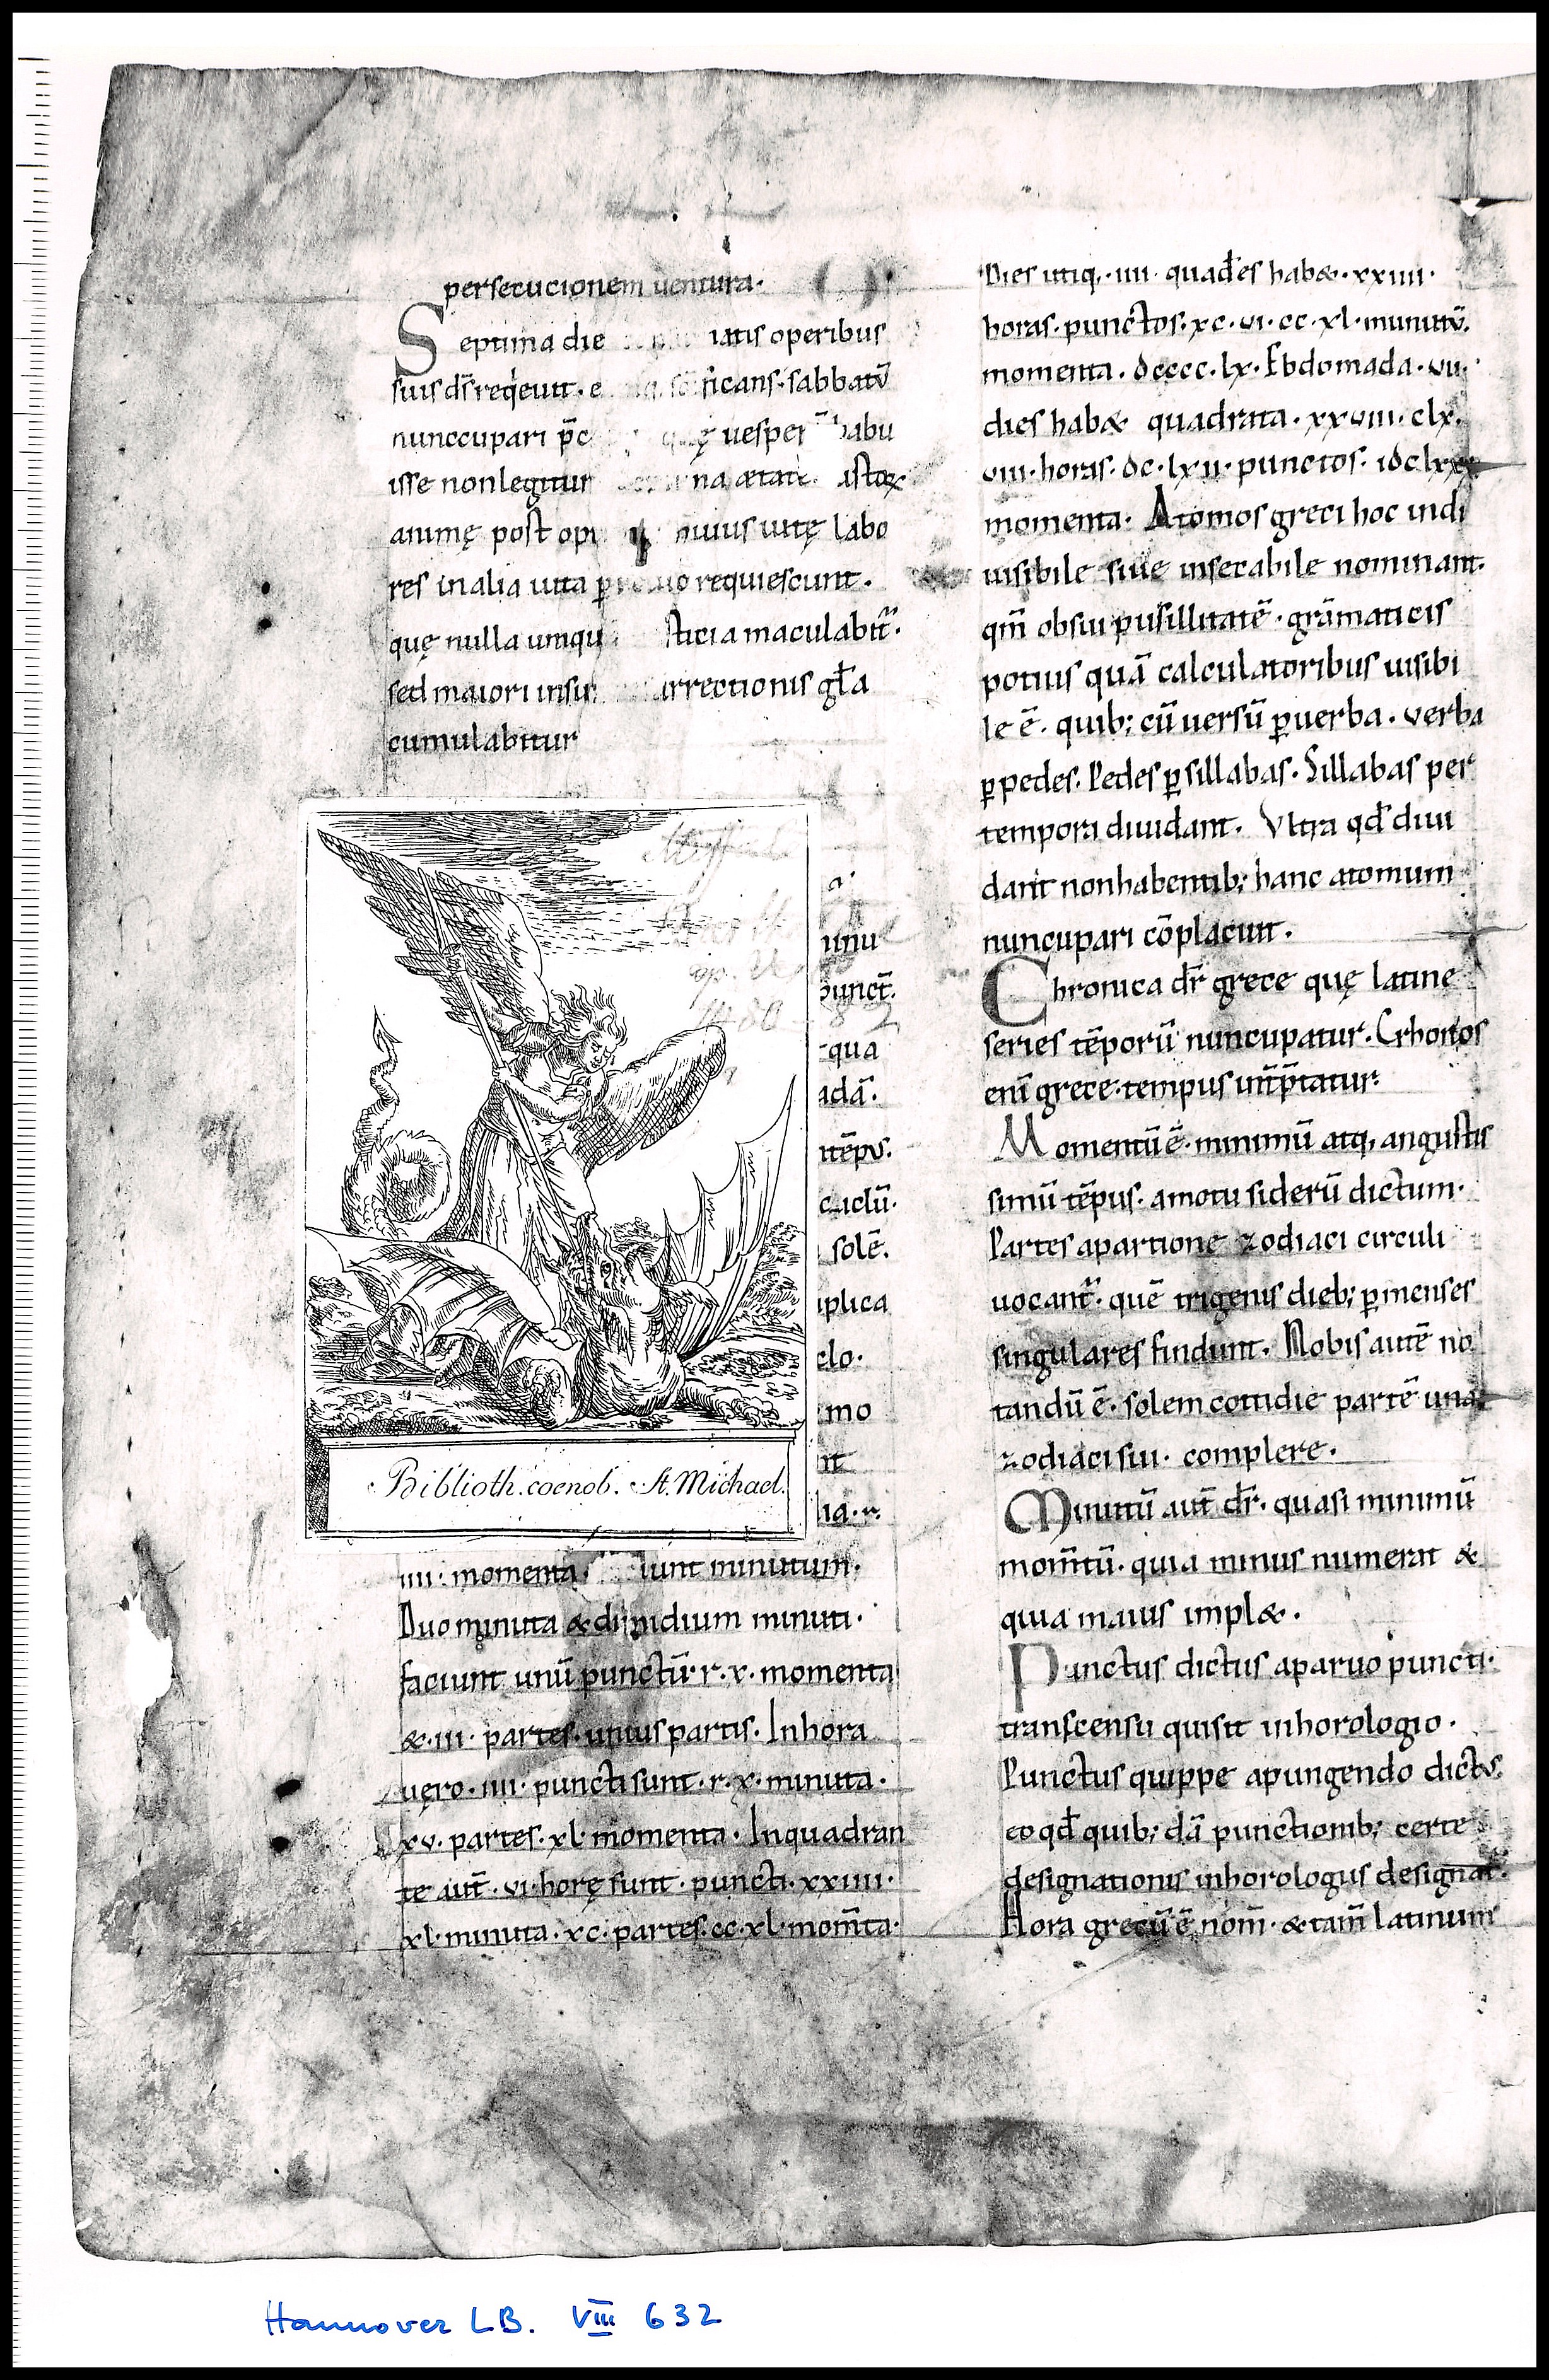 persecucionem ventura.
Septima die iatis operibus
suis d̄s reqeuit. e ficans. sabbatū
nunccupari p̄c quę uesper habu
isse non legitur na ætate. istoꝝ
animę post opt huius uitę labo
res in alia uita requiescunt.
quę nulla umqu sticia maculabit̄.
sed maiori insu urrectionis gl̄a
cumulabitur
unu
punct̄.
qua
adā.
tēpꝰ.
solē.
plica
clo.
mo
nt
lia. r.
Biblioth. coenob. St. Michael.
iiii. momenta. iunt minutum.
Duo minuta & dimidium minuti.
faciunt unū punctū. r. x. momenta
&. iii. partes. unius partis. In hora
uęro. iiii. puncti sunt. r. x. minuta.
xv. partes. xl. momenta. In quadran
te aut̄. vi. horę sunt. puncti. xxiiii.
xl. minuta. xc. partes. cc. xl. mom̄ta.
Dies utiq,. iiii. quad̄es hab&. xxiiii.
horas. punctos. xc. vi. cc. xl. minutū.
momenta. dcccc. lx. Ebdomada. vii.
dies hab& quadrata. xxviii. clx.
viii. horas. dc. lxii. punctos.
momenta. Atomos greci hoc indi
uisibile siue insecabile nominant.
qm̄ obsui pusillitatē. grāmaticis
potius quā calculatoribus uisibi
le ē. quib; cū uersū ꝑ uerba. verba
ꝑ pedes. Pedes ꝑ sillabas. Sillabas per
tempora diuidant. Vltra qd̄ diui
dant non habentib; hanc atomum
nuncupari cōplaciut.
Chronica dr̄ grece quę latine
series tēporū nuncupatur. Crhonos
enī grece. tempus int̄p̄tatur.
Momentū ē. minimū atq, angustis
simū tēpus. a motu siderū dictum.
Partes a partione zodiaci circuli
uocant̄. quē trigenis dieb; ꝑ menses
singulares findunt. Nobis autē no
tandū ē. solem cottidie partē una
zodiaci sui. complere.
Minutū aut̄ dr̄. quasi minimū
mom̄tū. quia minus numerat &
quia maius impl&.
Punctus dictus a paruo puncti.
transcensu qui sit in horologio.
Punctus quippe a pungendo dictꝰ.
eo qd̄ quib; dā punctionib; certe
designationis in horologiis designat.
Hora grecū ē nom̄. & tam̄ latinum
Hannover LB. VIII 632